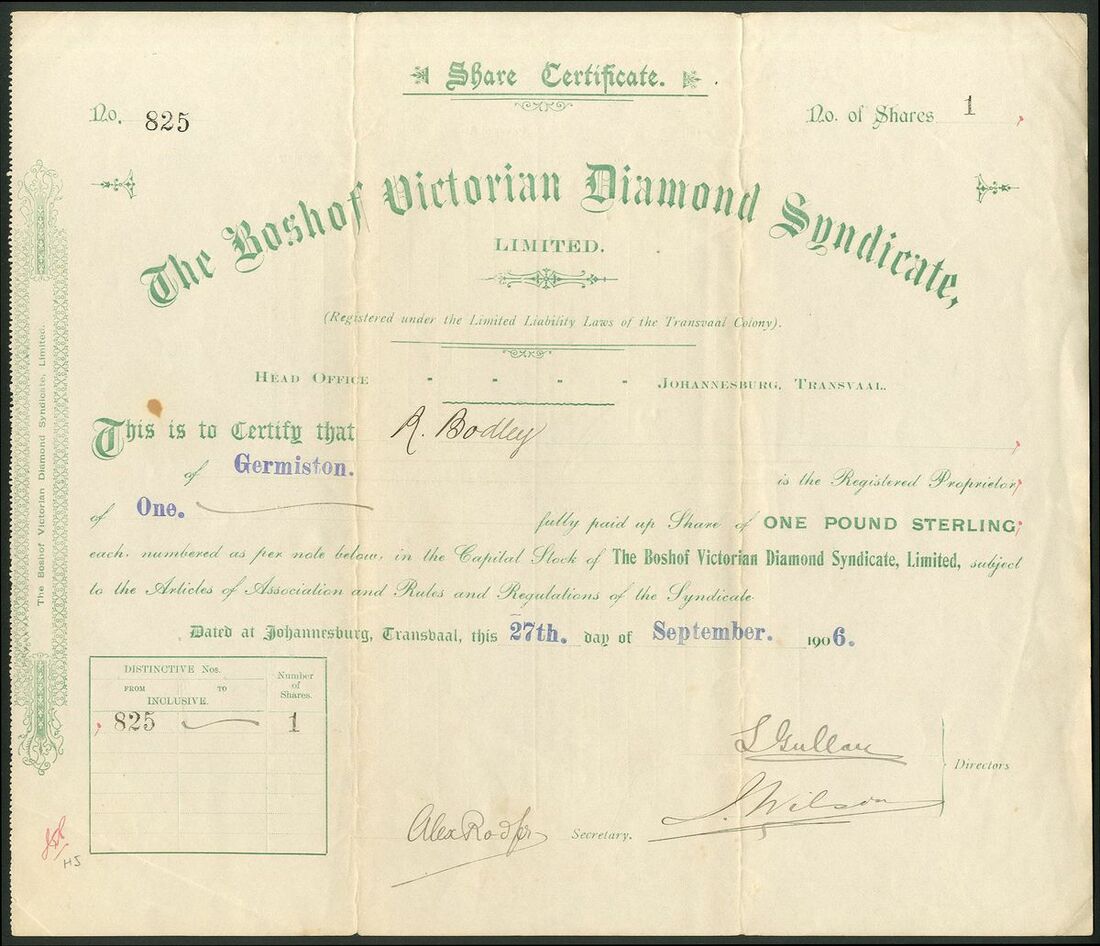 Share Certificate.
No. 825
No. of Shares 1
The Boshof Victorian Diamond Syndicate,
LIMITED.
(Registered under the Limited Liability Laws of the Transvaal Colony).
HEAD OFFICE - - - - JOHANNESBURG, TRANSVAAL.
This is to Certify that R. Bodley
of Germiston. is the Registered Proprietor
of One. fully paid up Share of ONE POUND STERLING
each, numbered as per note below, in the Capital Stock of The Boshof Victorian Diamond Syndicate, Limited, subject
to the Articles of Association and Rules and Regulations of the Syndicate
Dated at Johannesburg, Transvaal, this 27th. day of September. 1906.
DISTINCTIVE Nos.
FROM TO
INCLUSIVE.
Number
of
Shares.
825 1
L Gullan
J. Wilson
Directors
Alex Secretary.
HJ
The Boshof Victorian Diamond Syndicate, Limited.